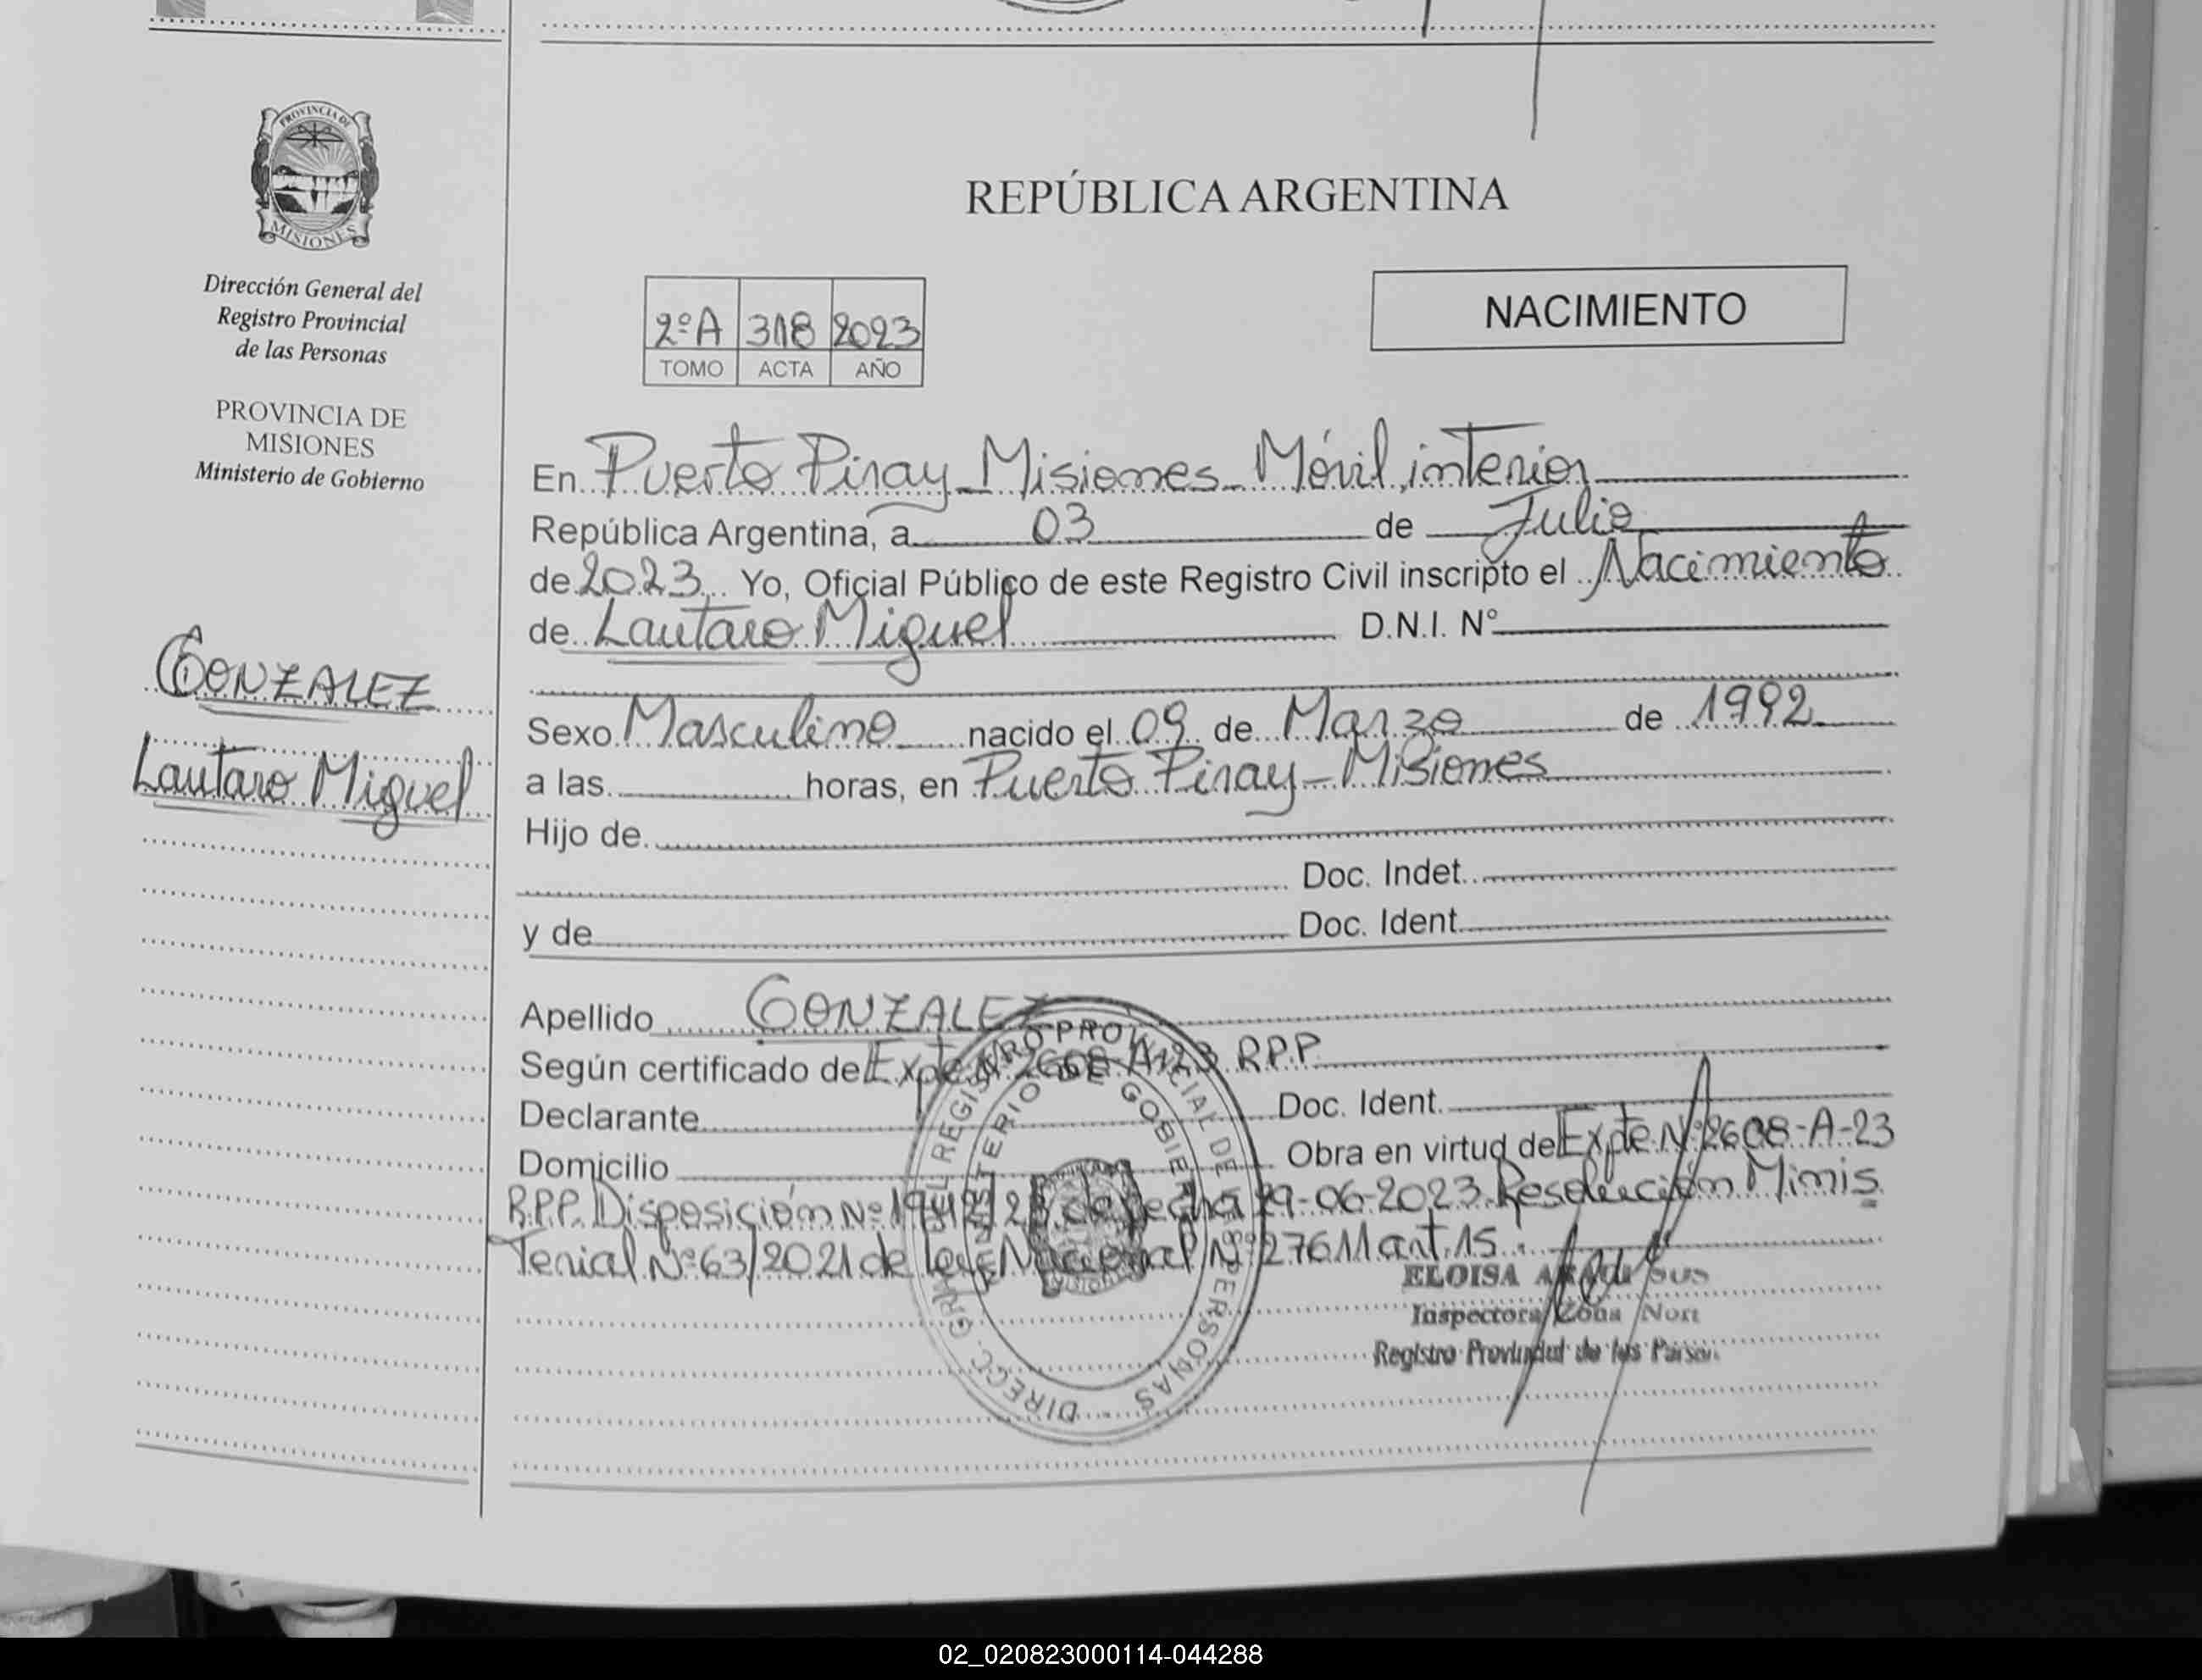 PROVINCIA DE
MISIONES
Dirección General del
Registro Provincial
de las Personas
PROVINCIA DE
MISIONES
Ministerio de Gobierno
GONZALEZ
Lautaro Miguel
REPÚBLICA ARGENTINA
2º A 318 2023
TOMO ACTA AÑO
NACIMIENTO
En Puerto Piray - Misiones - Móvil, interior
República Argentina, a 03 de Julio
de 2023 Yo, Oficial Público de este Registro Civil inscripto el Nacimiento
de Lautaro Miguel D.N.I. Nº
Sexo Masculino nacido el 09 de Marzo de 1992
a las horas, en Puerto Piray - Misiones
Hijo de
Doc. Indet.
y de Doc. Ident
Apellido GONZALEZ
Según certificado de Expte Nº 2608-A-23 R.P.P.
Declarante Doc. Ident.
Domicilio Obra en virtud de Expte Nº 2608-A-23
R.P.P. Disposición Nº de fecha 29-06-2023. Resolución Minis
terial Nº 63/2021 de Ley Nacional Nº 27611 art. 15.
DIRECC. GRAL REGISTRO PROVINCIAL DE LAS PERSONAS
MINISTERIO DE GOBIERNO
ELOISA
Inspectora Zona Nort
Registro Provincial de las Person
02_020823000114-044288